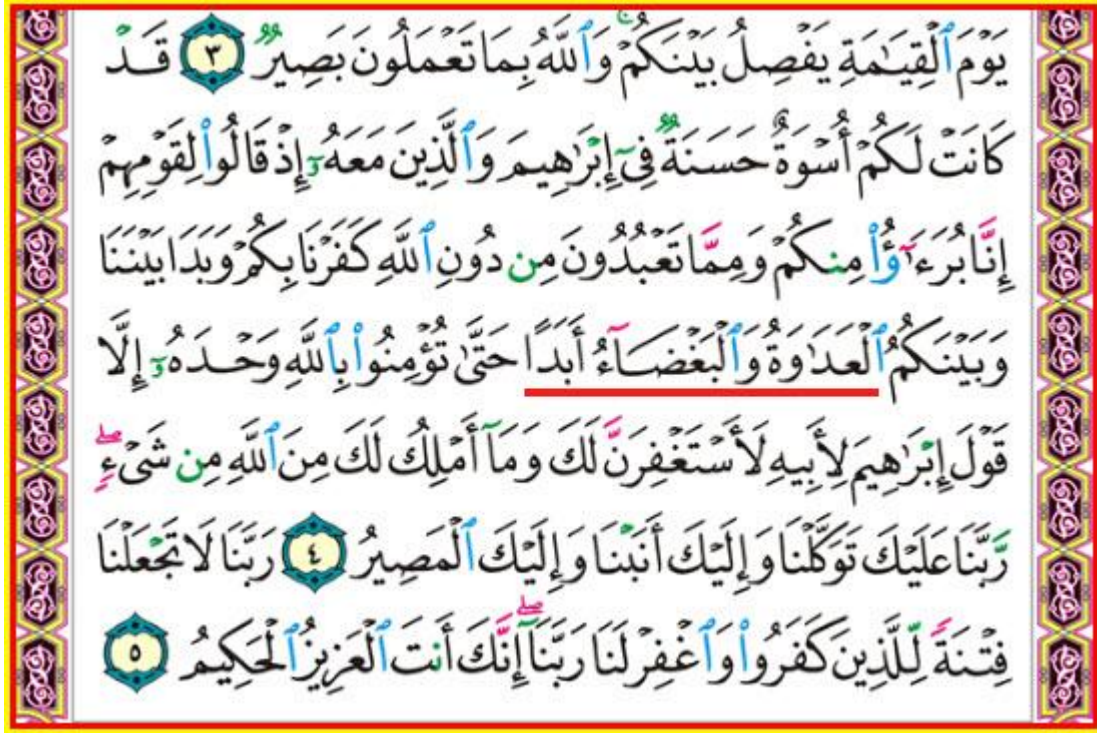 يَوْمَ ٱلْقِيَـٰمَةِ يَفْصِلُ بَيْنَكُمْ ۚ وَٱللَّهُ بِمَا تَعْمَلُونَ بَصِيرٌ ٣ قَدْ
كَانَتْ لَكُمْ أُسْوَةٌ حَسَنَةٌ فِىٓ إِبْرَٰهِيمَ وَٱلَّذِينَ مَعَهُۥٓ إِذْ قَالُوا۟ لِقَوْمِهِمْ
إِنَّا بُرَءَٰٓؤُا۟ مِنكُمْ وَمِمَّا تَعْبُدُونَ مِن دُونِ ٱللَّهِ كَفَرْنَا بِكُمْ وَبَدَا بَيْنَنَا
وَبَيْنَكُمُ ٱلْعَدَٰوَةُ وَٱلْبَغْضَآءُ أَبَدًا حَتَّىٰ تُؤْمِنُوا۟ بِٱللَّهِ وَحْدَهُۥٓ إِلَّا
قَوْلَ إِبْرَٰهِيمَ لِأَبِيهِ لَأَسْتَغْفِرَنَّ لَكَ وَمَآ أَمْلِكُ لَكَ مِنَ ٱللَّهِ مِن شَىْءٍ ۖ
رَّبَّنَا عَلَيْكَ تَوَكَّلْنَا وَإِلَيْكَ أَنَبْنَا وَإِلَيْكَ ٱلْمَصِيرُ ٤ رَبَّنَا لَا تَجْعَلْنَا
فِتْنَةً لِّلَّذِينَ كَفَرُوا۟ وَٱغْفِرْ لَنَا رَبَّنَآ ۖ إِنَّكَ أَنتَ ٱلْعَزِيزُ ٱلْحَكِيمُ ٥